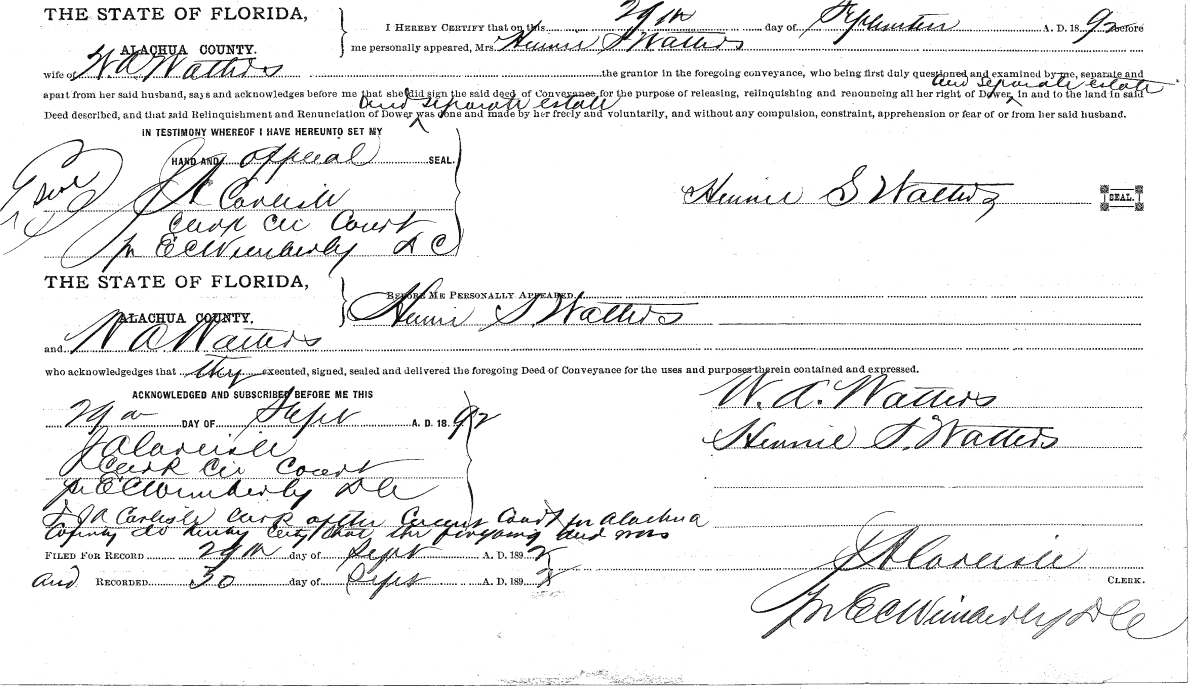 THE STATE OF FLORIDA,
ALACHUA COUNTY.
I HEREBY CERTIFY that on this 29th day of September A. D. 1892 before
me personally appeared, Mrs. Hennie S Watters
wife of W. A Watters the grantor in the foregoing conveyance, who being first duly questioned and examined by me, separate and
and separate estate
apart from her said husband, says and acknowledges before me that she did sign the said deed of Conveyance for the purpose of releasing, relinquishing and renouncing all her right of Dower, in and to the land in said
and separate estate
Deed described, and that said Relinquishment and Renunciation of Dower was done and made by her freely and voluntarily, and without any compulsion, constraint, apprehension or fear of or from her said husband.
IN TESTIMONY WHEREOF I HAVE HEREUNTO SET MY
HAND AND official SEAL.
Seal
J A Carlisle
Clerk Cir Court
pr E C Wimberly D C
Hennie S Watters SEAL.
THE STATE OF FLORIDA,
ALACHUA COUNTY.
BEFORE ME PERSONALLY APPEARED
Hennie S. Watters
and W A Watters
who acknowledgedges that they executed, signed, sealed and delivered the foregoing Deed of Conveyance for the uses and purposes therein contained and expressed.
ACKNOWLEDGED AND SUBSCRIBED BEFORE ME THIS
29th DAY OF Sept A. D. 1892
J A Carlisle
Clerk Cir Court
pr E C Wimberly D C
W. A. Watters
Hennie S. Watters
I J A Carlisle Clerk of the Circuit Court for Alachua
County do hereby certify that the foregoing and was
FILED FOR RECORD 29th day of Sept A. D. 1892
and RECORDED 30 day of Sept A. D. 1892
J A Carlisle
CLERK.
pr E C Wimberly D C